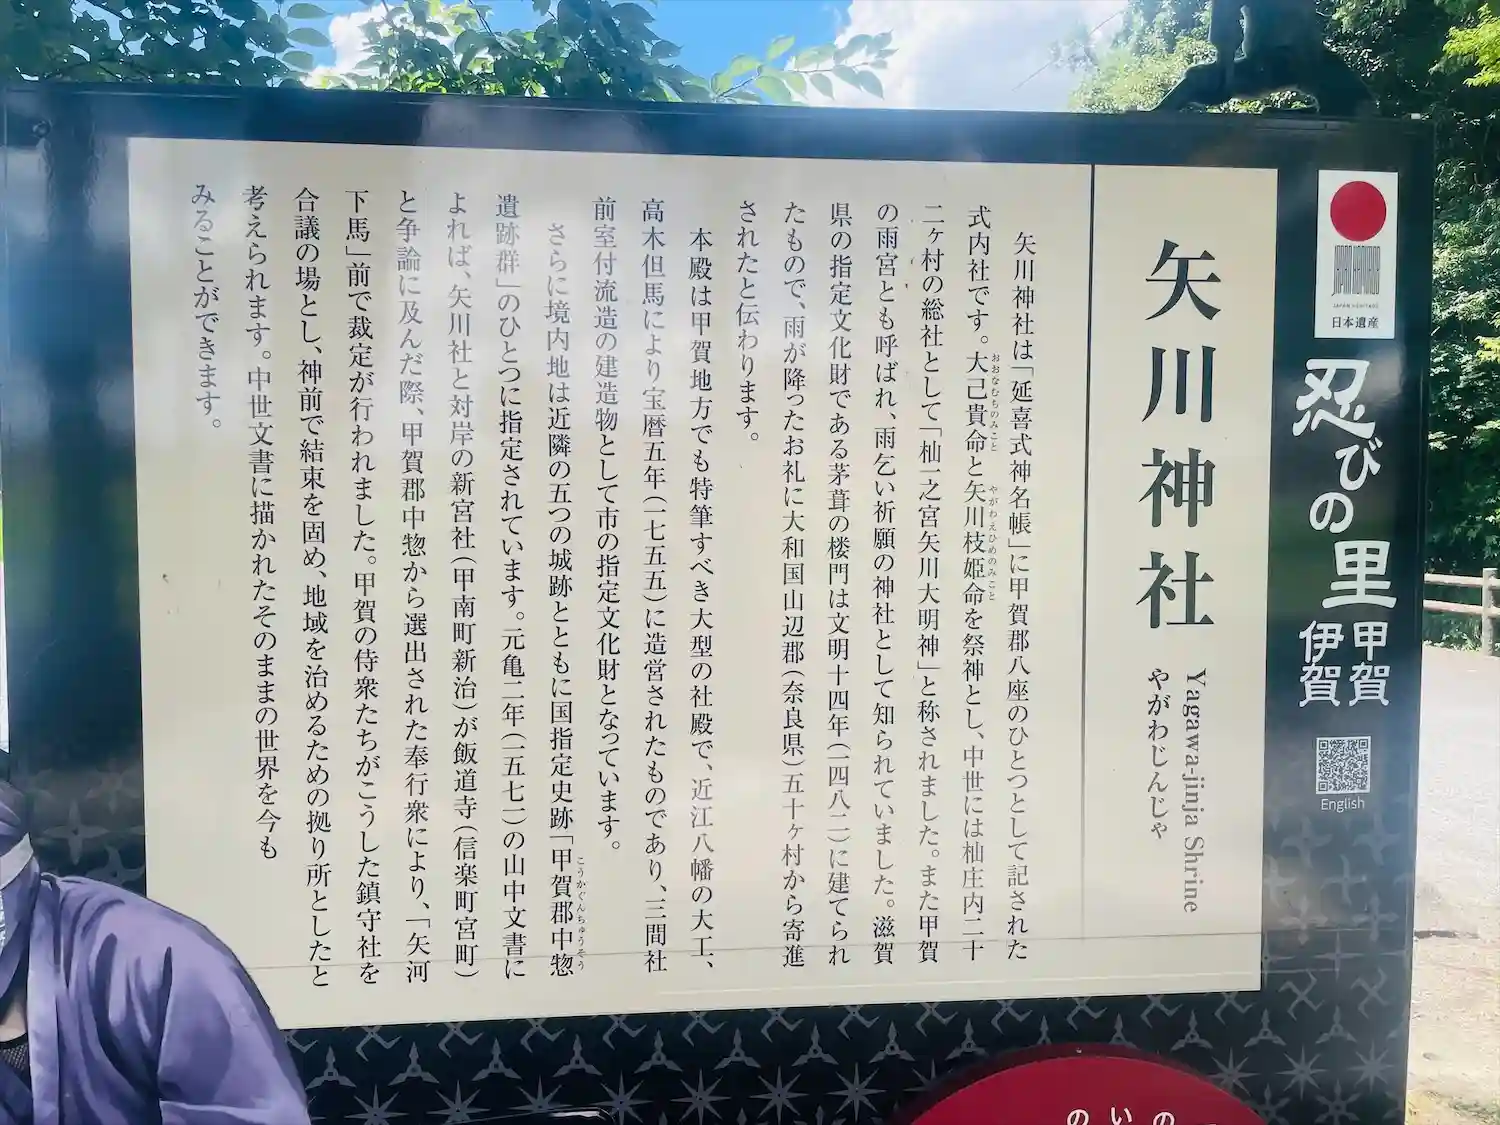 矢川神社
Yagawa-jinja Shrine
やがわじんじゃ
矢川神社は「延喜式神名帳」に甲賀郡八座のひとつとして記された
式内社です。大己貴命と矢川枝姫命を祭神とし、中世には杣庄内二十
おおなむちのみこと
やがわえひめのみこと
二ヶ村の総社として「杣一之宮矢川大明神」と称されました。また甲賀
の雨宮とも呼ばれ、雨乞い祈願の神社として知られていました。滋賀
県の指定文化財である茅葺の楼門は文明十四年(一四八二)に建てられ
たもので、雨が降ったお礼に大和国山辺郡(奈良県)五十ヶ村から寄進
されたと伝わります。
本殿は甲賀地方でも特筆すべき大型の社殿で、近江八幡の大工、
高木但馬により宝暦五年(一七五五)に造営されたものであり、三間社
前室付流造の建造物として市の指定文化財となっています。
さらに境内地は近隣の五つの城跡とともに国指定史跡「甲賀郡中惣
こうかぐんちゅうそう
遺跡群」のひとつに指定されています。元亀二年(一五七一)の山中文書に
よれば、矢川社と対岸の新宮社(甲南町新治)が飯道寺(信楽町宮町)
と争論に及んだ際、甲賀郡中惣から選出された奉行衆により、「矢河
下馬」前で裁定が行われました。甲賀の侍衆たちがこうした鎮守社を
合議の場とし、神前で結束を固め、地域を治めるための拠り所としたと
考えられます。中世文書に描かれたそのままの世界を今も
みることができます。
JAPAN HERITAGE
日本遺産
忍びの里
甲賀
伊賀
English
のいの